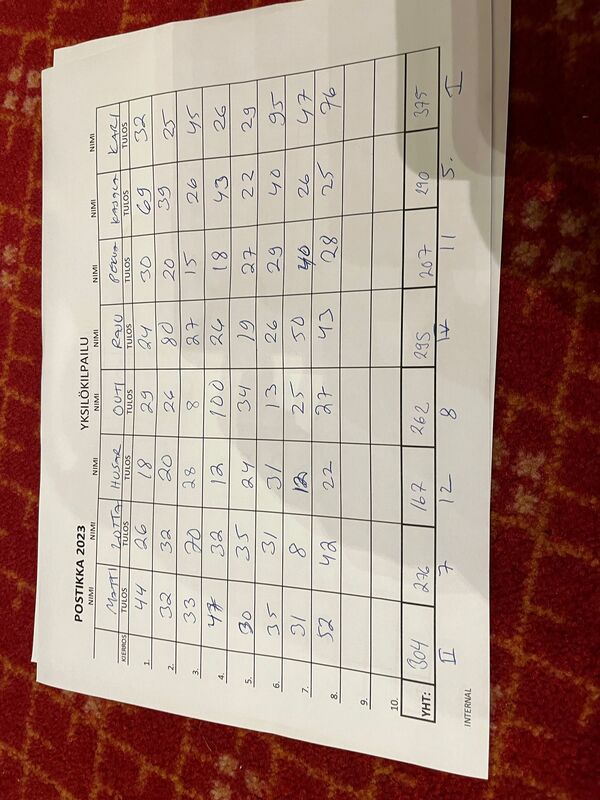 POSTIKKA 2023 YKSILÖKILPAILU
NIMI NIMI NIMI NIMI NIMI NIMI NIMI NIMI
MATTI LOTTA HUSAR OUTI KARI
KIERROS TULOS TULOS TULOS TULOS TULOS TULOS TULOS TULOS
1. 44 26 18 29 24 30 69 32
2. 32 32 20 26 80 20 39 25
3. 33 70 28 8 27 15 26 45
4. 47 32 12 100 26 18 43 26
5. 30 35 24 34 19 27 22 29
6. 35 31 31 13 26 29 40 95
7. 31 8 12 25 50 40 26 47
8. 52 42 22 27 43 28 25 76
9.
10.
YHT: 304 276 167 262 295 207 290 375
II 7 12 8 IV 11 5. I
INTERNAL